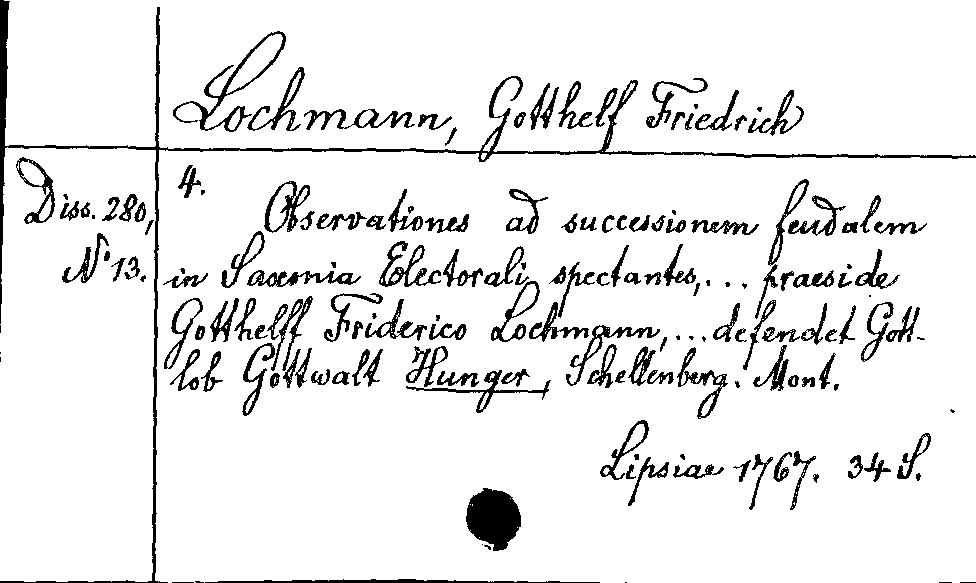 Lochmann, Gotthelf Friedrich
Diss. 280,
No 13.
4.
Observationes ad successionem feudalem
in Saxonia Electorali spectantes,... praeside
Gotthelff Friderico Lochmann,...defendet Gott-
lob Gottwalt Hunger, Schellenberg. Mont.
Lipsiae 1767. 34 S.